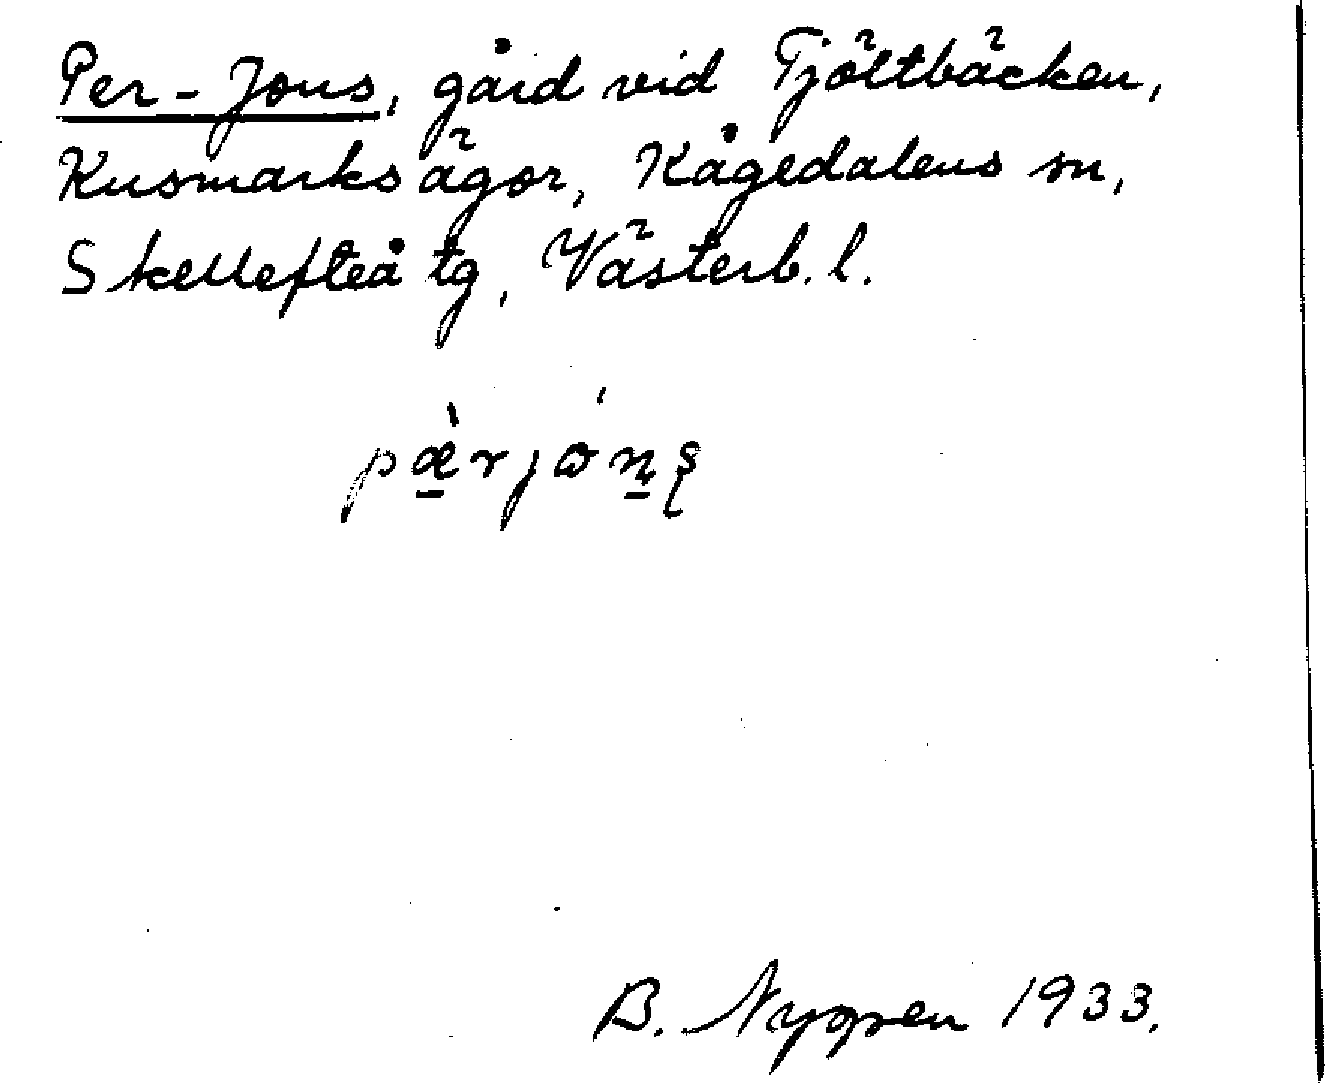 Per-Jons, gård vid Tjöltbäcken,
Kusmarks ägor, Kågedalens sn,
Skellefteå tg, Västerb. l.
pæ̀rjóns
B. Nygren 1933.